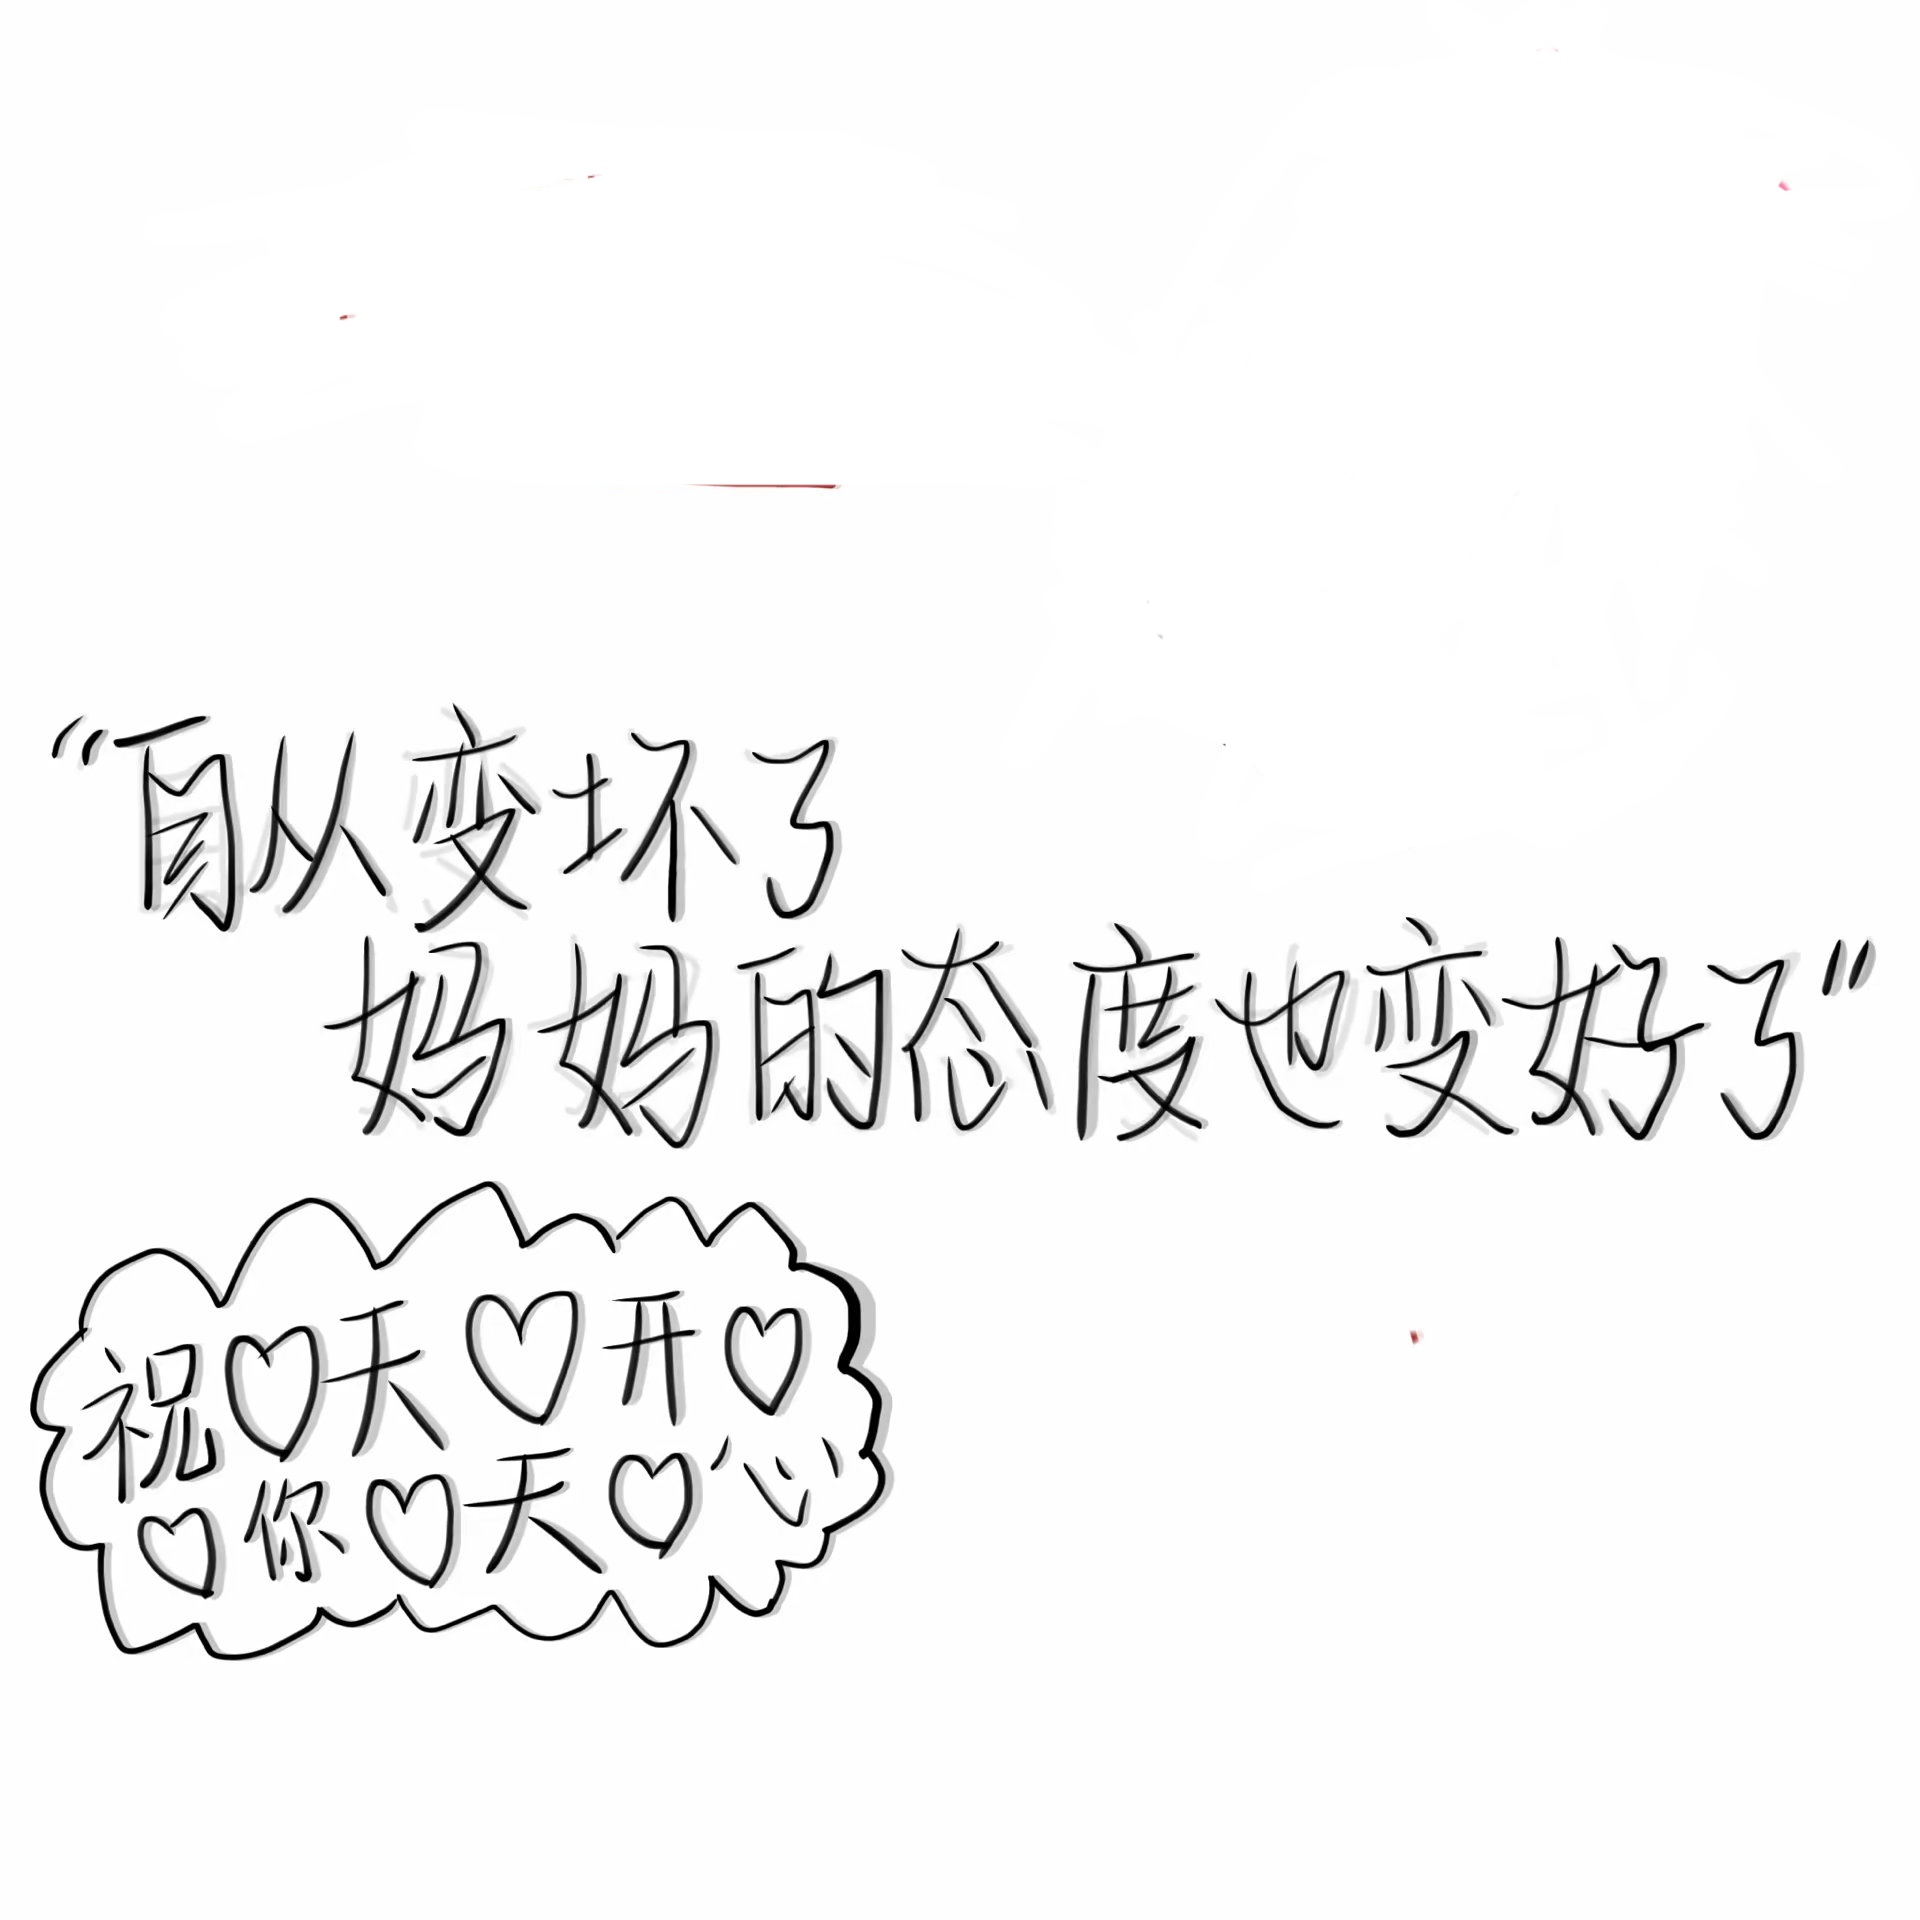 “自从变坏了
妈妈的态度也变好了”
祝♡天♡开♡
♡你♡天♡心